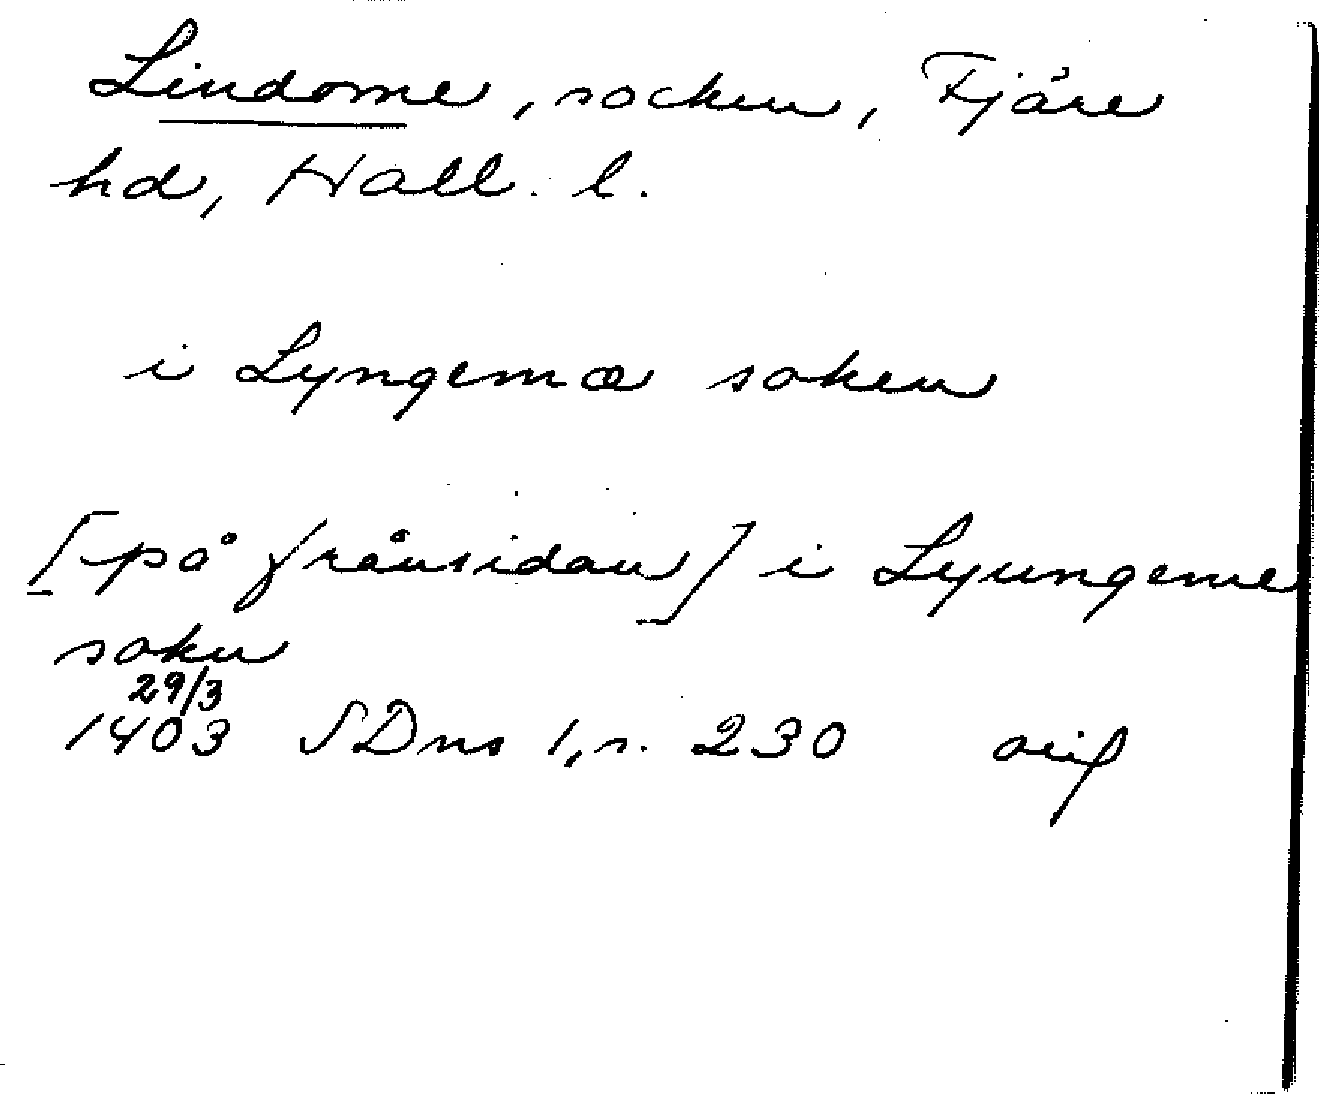 Lindome, socken, Fjäre
hd, Hall. l.
i Lyngemæ soken
[på frånsidan] i Lyungeme
sokn
29/3
1403 SDns 1, s. 230 orig